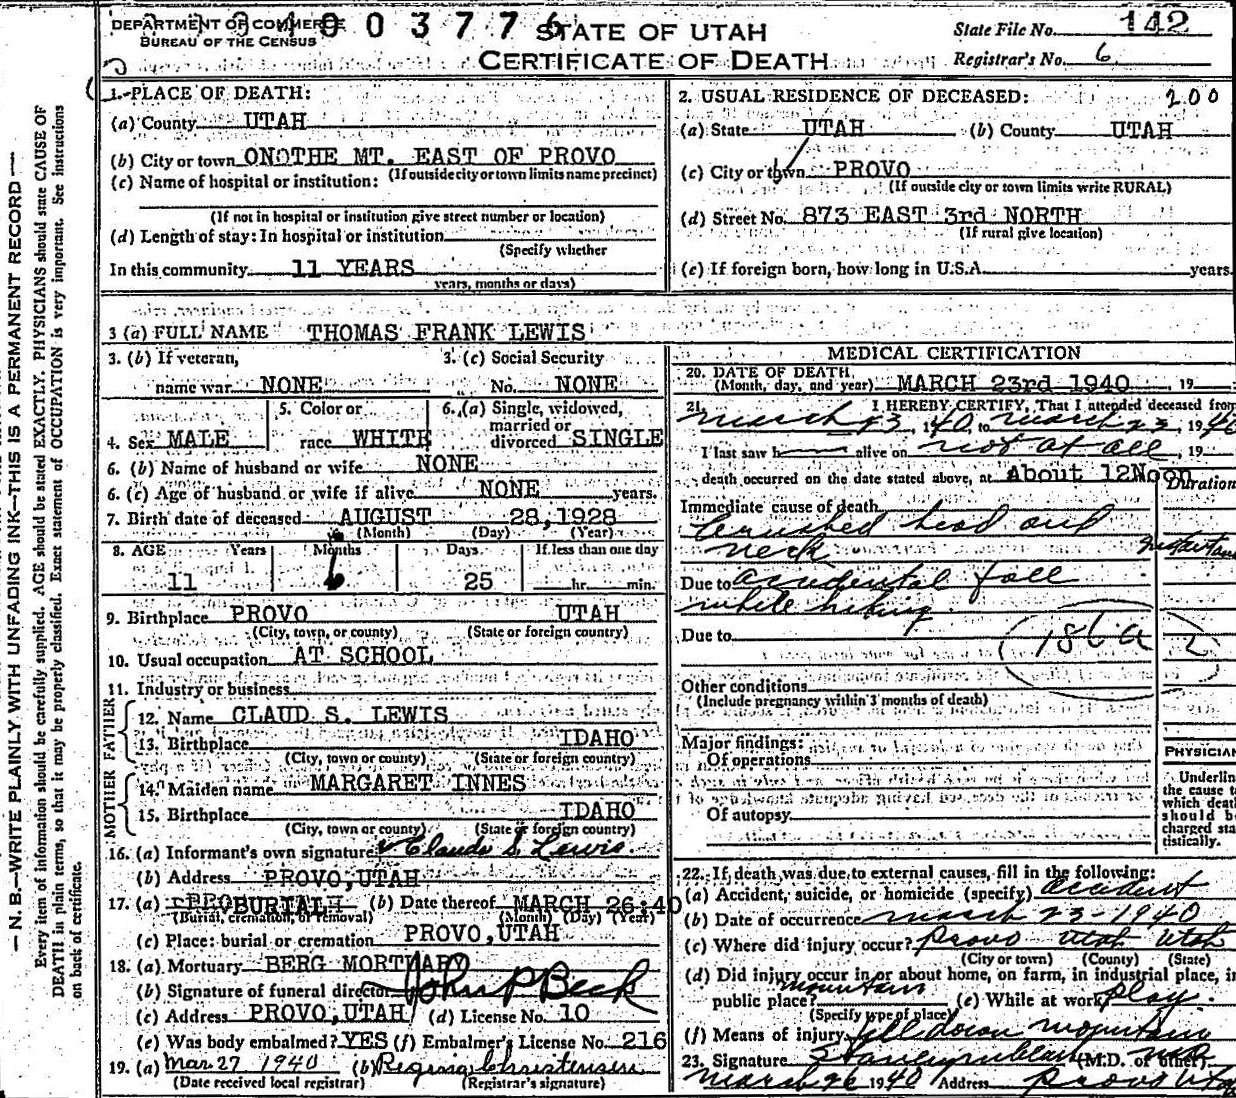 DEPARTMENT OF COMMERCE
BUREAU OF THE CENSUS
400377
STATE OF UTAH
CERTIFICATE OF DEATH
State File No. 142
Registrar's No. 6
— N. B.—WRITE PLAINLY WITH UNFADING INK—THIS IS A PERMANENT RECORD —
Every item of information should be carefully supplied. AGE should be stated EXACTLY. PHYSICIANS should state CAUSE OF
DEATH in plain terms, so that it may be properly classified. Exact statement of OCCUPATION is very important. See instructions
on back of certificate.
1. PLACE OF DEATH:
(a) County UTAH
(b) City or town ON THE MT. EAST OF PROVO
(If outside city or town limits name precinct)
(c) Name of hospital or institution:
(If not in hospital or institution give street number or location)
(d) Length of stay: In hospital or institution
(Specify whether
In this community 11 YEARS
years, months or days)
2. USUAL RESIDENCE OF DECEASED: 200
(a) State UTAH (b) County UTAH
(c) City or town PROVO
(If outside city or town limits write RURAL)
(d) Street No. 873 EAST 3rd NORTH
(If rural give location)
(e) If foreign born, how long in U.S.A. years.
3 (a) FULL NAME THOMAS FRANK LEWIS
3. (b) If veteran, name war NONE
3. (c) Social Security No. NONE
4. Sex MALE
5. Color or race WHITE
6. (a) Single, widowed, married or divorced SINGLE
6. (b) Name of husband or wife NONE
6. (c) Age of husband or wife if alive NONE years.
7. Birth date of deceased AUGUST 28, 1928
(Month) (Day) (Year)
8. AGE Years Months Days If less than one day
11 6 25 hr. min.
9. Birthplace PROVO UTAH
(City, town, or county) (State or foreign country)
10. Usual occupation AT SCHOOL
11. Industry or business
FATHER
12. Name CLAUD S. LEWIS
13. Birthplace IDAHO
(City, town or county) (State or foreign country)
MOTHER
14. Maiden name MARGARET INNES
15. Birthplace IDAHO
(City, town or county) (State or foreign country)
16. (a) Informant's own signature Claude S. Lewis
(b) Address PROVO, UTAH
17. (a) BURIAL (b) Date thereof MARCH 26:40
(Burial, cremation, or removal) (Month) (Day) (Year)
(c) Place: burial or cremation PROVO, UTAH
18. (a) Mortuary BERG MORTUARY
(b) Signature of funeral director John P Beck
(c) Address PROVO, UTAH (d) License No. 10
(e) Was body embalmed? YES (f) Embalmer's License No. 216
19. (a) Mar 27 1940 (b) Regina Christensen
(Date received local registrar) (Registrar's signature)
MEDICAL CERTIFICATION
20. DATE OF DEATH
(Month, day, and year) MARCH 23rd 1940, 19
21. I HEREBY CERTIFY, That I attended deceased from
March 23, 1940 to March 23, 1940
I last saw h alive on not at all, 19
death occurred on the date stated above, at About 12Noon
Duration
Immediate cause of death
Crushed head and
neck
Due to accidental fall
while hiking
Due to
186a 2
Other conditions
(Include pregnancy within 3 months of death)
Major findings:
Of operations
Of autopsy
PHYSICIAN
Underlin
the cause t
which deat
should b
charged sta
tistically.
22. If death was due to external causes, fill in the following:
(a) Accident, suicide, or homicide (specify) accident
(b) Date of occurrence March 23-1940
(c) Where did injury occur? Provo Utah Utah
(City or town) (County) (State)
(d) Did injury occur in or about home, on farm, in industrial place, in
public place? mountain (e) While at work? play.
(Specify type of place)
(f) Means of injury fell down mountain
23. Signature (M.D. or other)
March 26 1940 Address Provo Utah